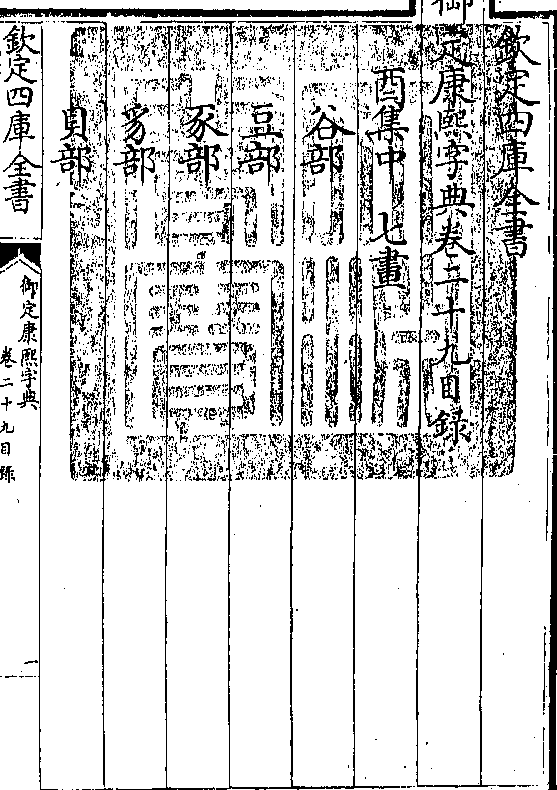 欽定四庫全書
御定康熙字典卷二十九目錄
酉集中 七畫
谷部
豆部
豕部
豸部
貝部
欽定四庫全書
御定康熙字典
卷二十九目錄
一